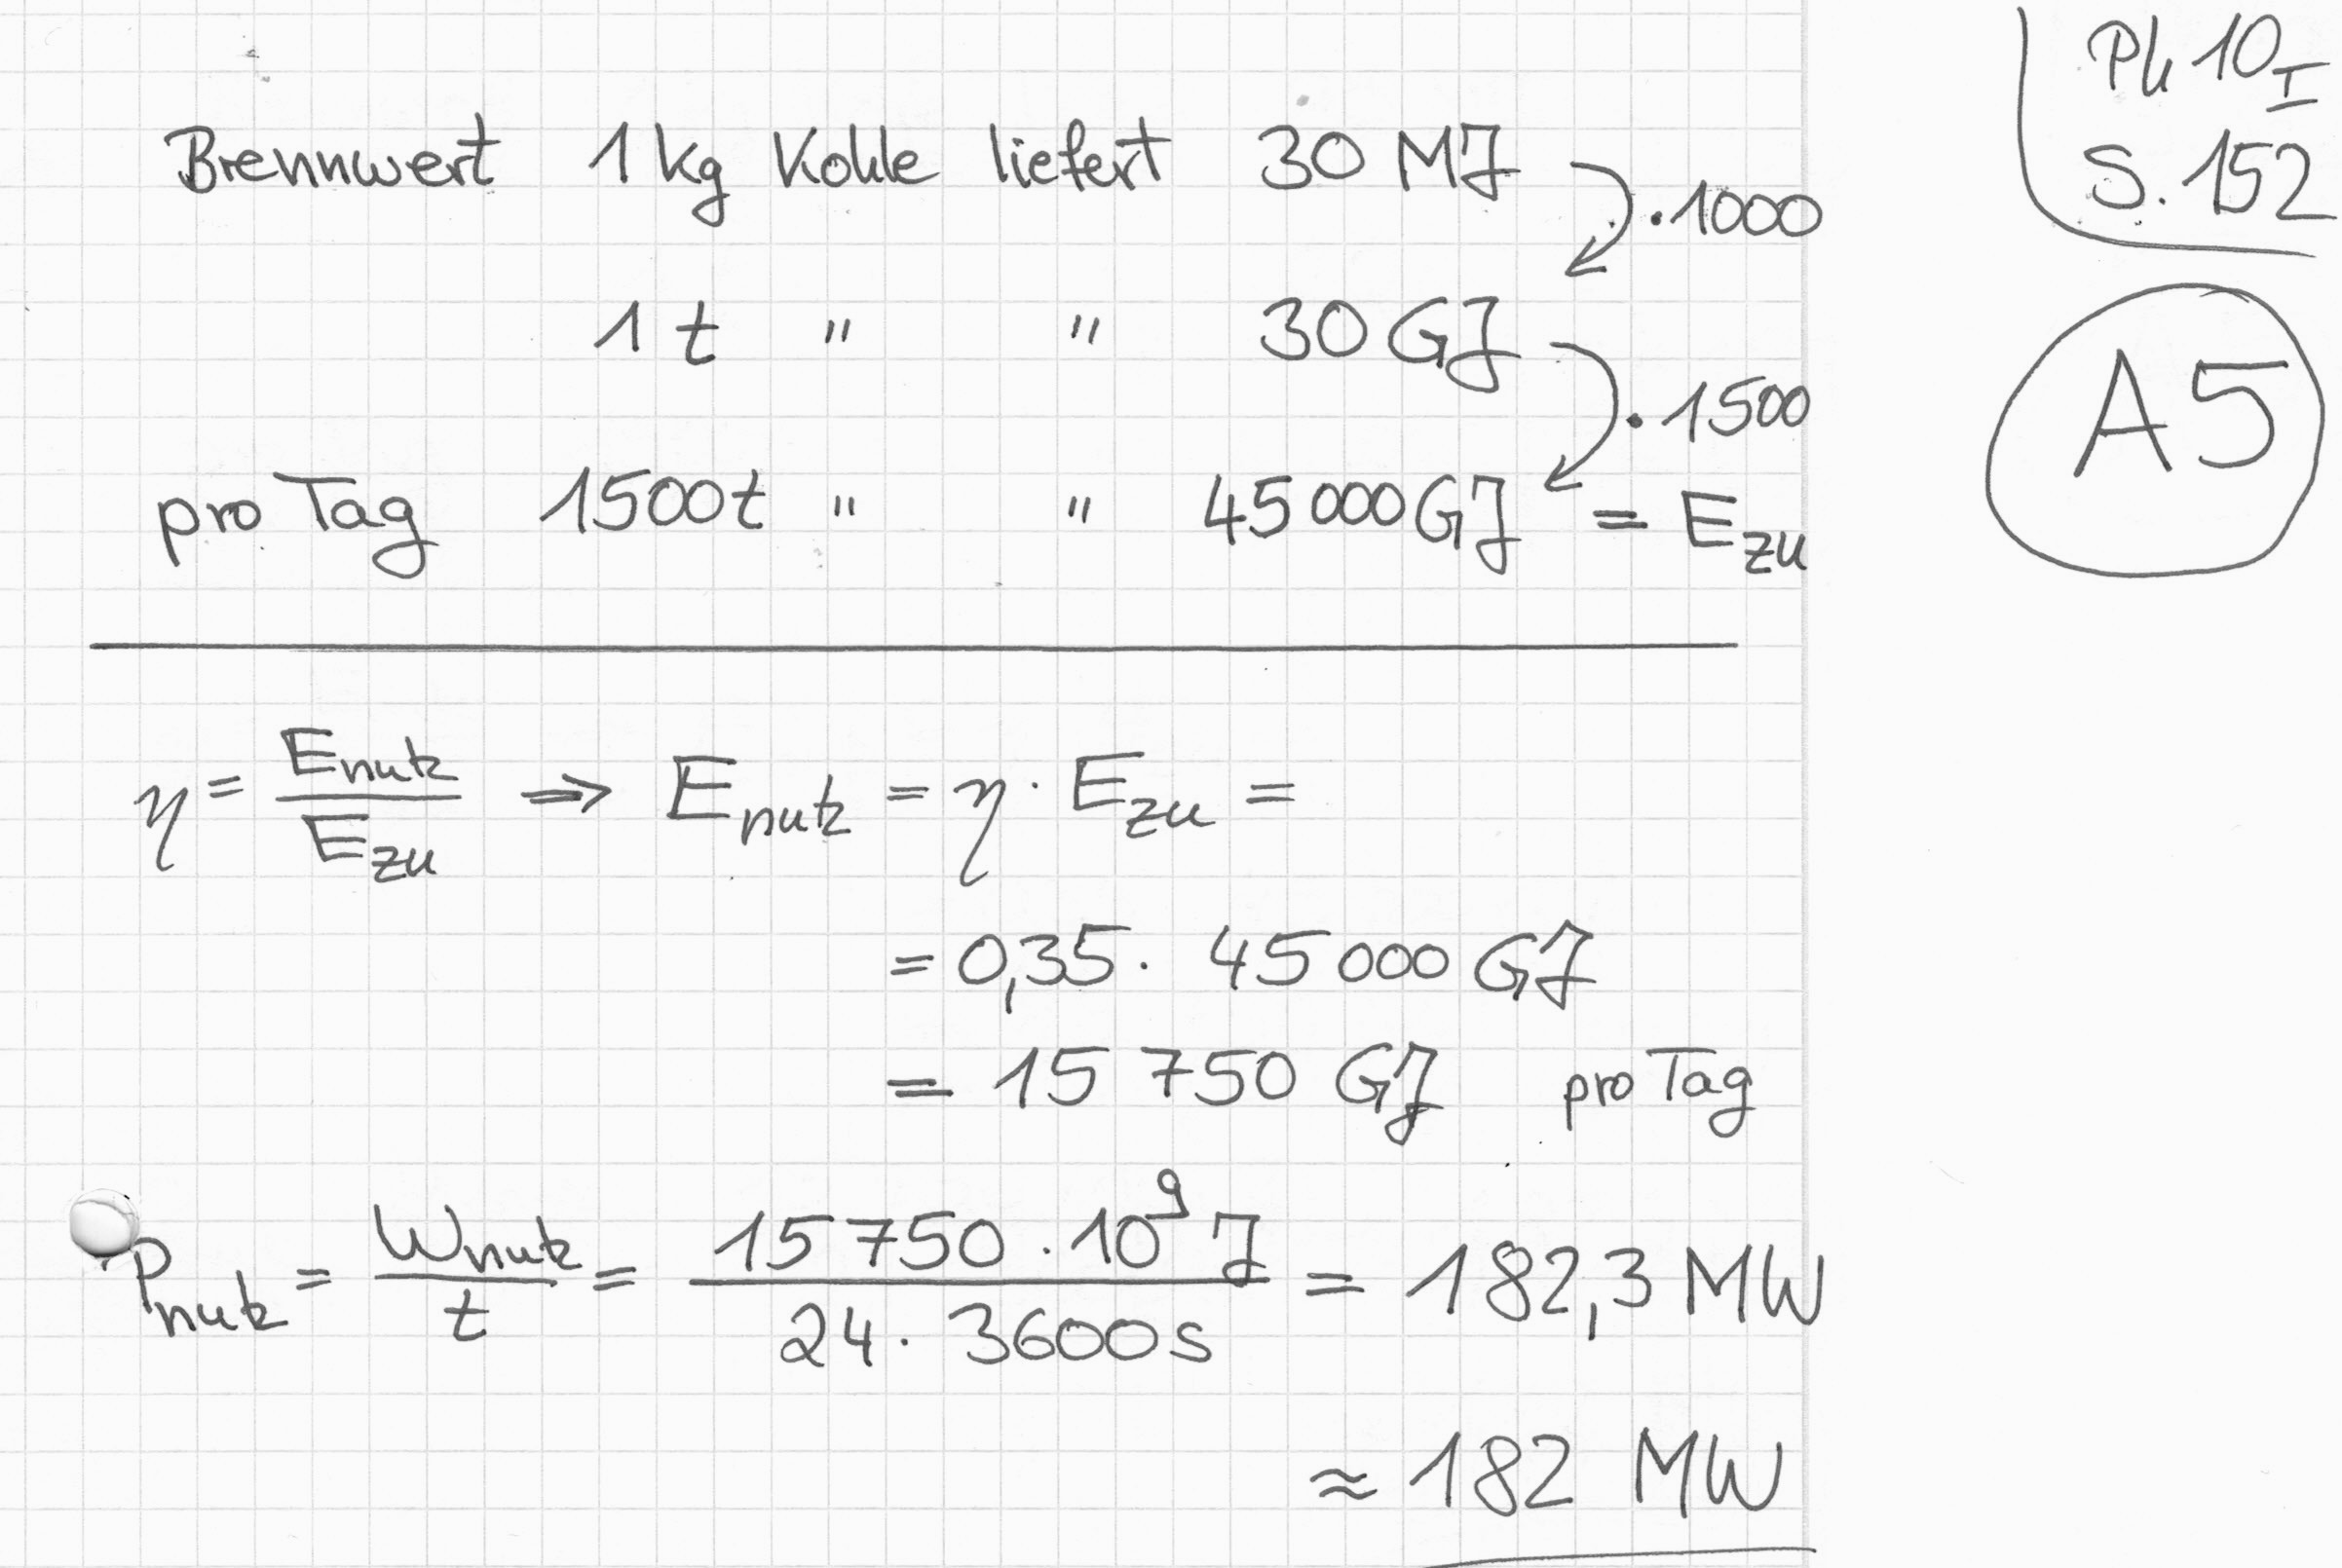 Ph 10 I
S. 152
A5
Brennwert 1 kg Kohle liefert 30 MJ
· 1000
1 t " " 30 GJ
· 1500
pro Tag 1500 t " " 45 000 GJ = E_zu
η = E_nutz / E_zu ⇒ E_nutz = η · E_zu =
= 0,35 · 45 000 GJ
= 15 750 GJ pro Tag
P_nutz = W_nutz / t = 15 750 · 10⁹ J / 24 · 3600 s = 182,3 MW
≈ 182 MW